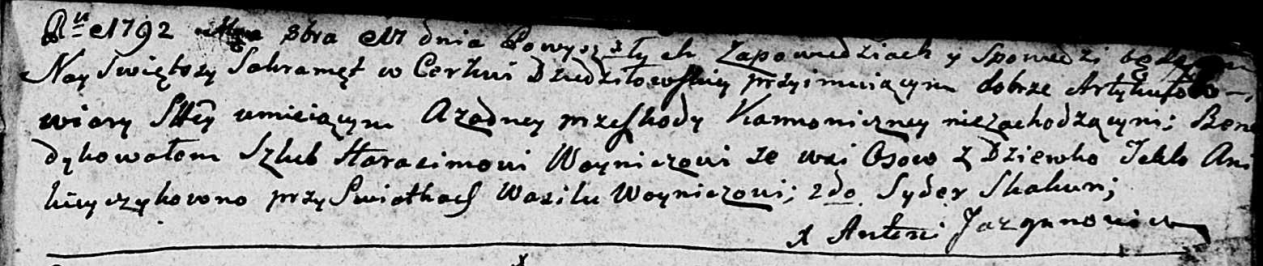 Ru 1792 8bra 17 dnia Powyszłych Zapowiedziach y Spowiedzi będącym
Nayświętszy Sakramęt w Cerkwi Dziedziłowskiey przyimuiącym dobrze Artykułow
wiary Stey umieiącym Azadney przeszkody Kannoniczney niezachodzącym; Bene
dykowałem Szlub Haracimowi Woyniczowi ze wsi Osow z Dziewko Teklo Ani
przy Swiatkach Wasilu Woyniczowi; 2do Syder Skakun;
x Antoni Jazgunowicz